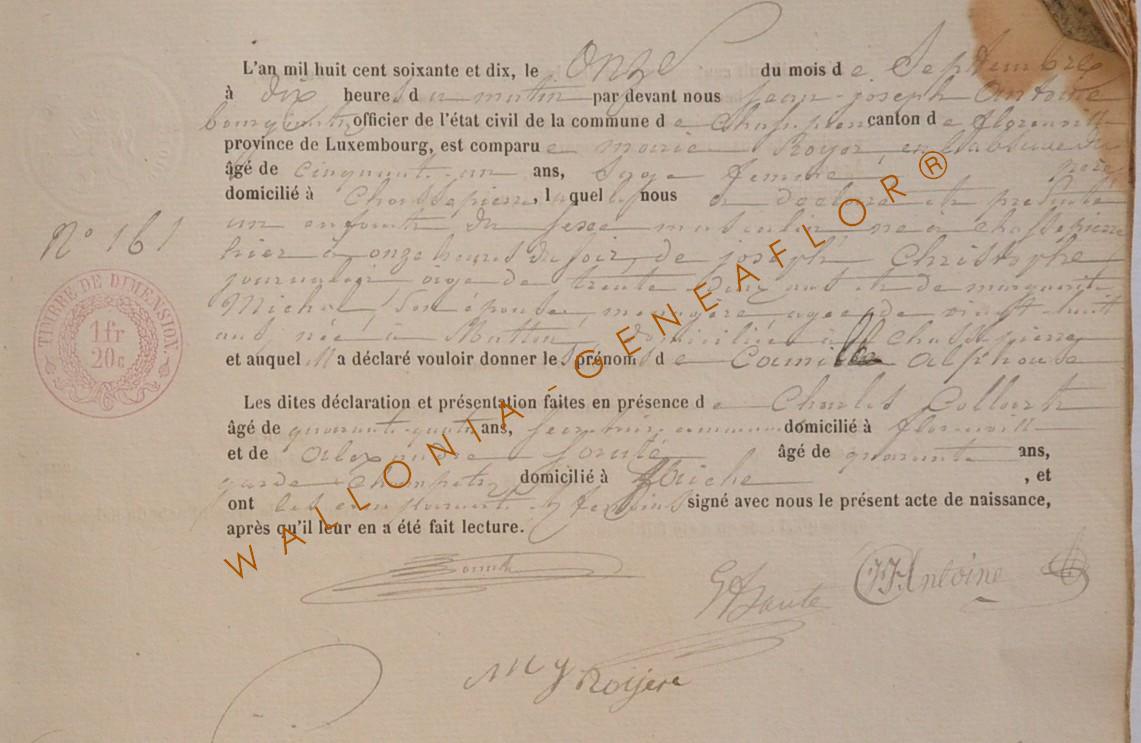 L'an mil huit cent soixante et dix, le onze du mois de Septembre
à dix heures du matin par devant nous jean-joseph Antoine
bourgmestre officier de l'état civil de la commune de Chassepierre canton de florenville
province de Luxembourg, est comparue marie Royer, en l'absence du père
âgé de cinquante un ans, Sage femme
domicilié à Chassepierre, laquelle nous a déclaré et présenté
N° 161
un enfant du sexe masculin né à chassepierre
hier à onze heures du soir, de joseph Christophe
journalier âgé de trente ans et de marguerite
Michel, son épouse, ménagère, agée de vingt huit
ans née à domiciliés à Chassepierre
et auquel il a déclaré vouloir donner les prénoms de Camille alphonse
TIMBRE DE DIMENSION.
1 fr
20 c
Les dites déclaration et présentation faites en présence de Charles
âgé de quarante-quatre ans, secrétaire communal domicilié à florenville
et de alexandre âgé de quarante ans,
garde champêtre domicilié à , et
ont les comparant et témoins signé avec nous le présent acte de naissance,
après qu'il leur en a été fait lecture.
JJAntoine
M J Roijere
WALLONIA-GENEAFLOR®